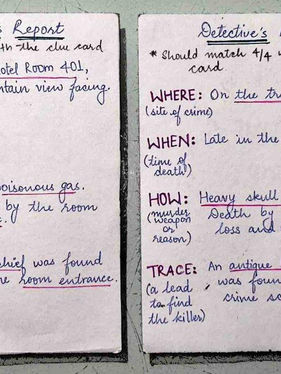 Report
th the clue card
otel Room 401,
ntain view facing.
oisonous gas.
by the room
chief was found
e room entrance.
Detective's
* Should match 4/4 w
card
WHERE: On the tr
(site of crime)
WHEN: Late in the
(time of
death)
HOW: Heavy skull
(murder Death by
weapon loss and
or
reason)
TRACE: An antique
(a lead was foun
to find crime sc
the killer)